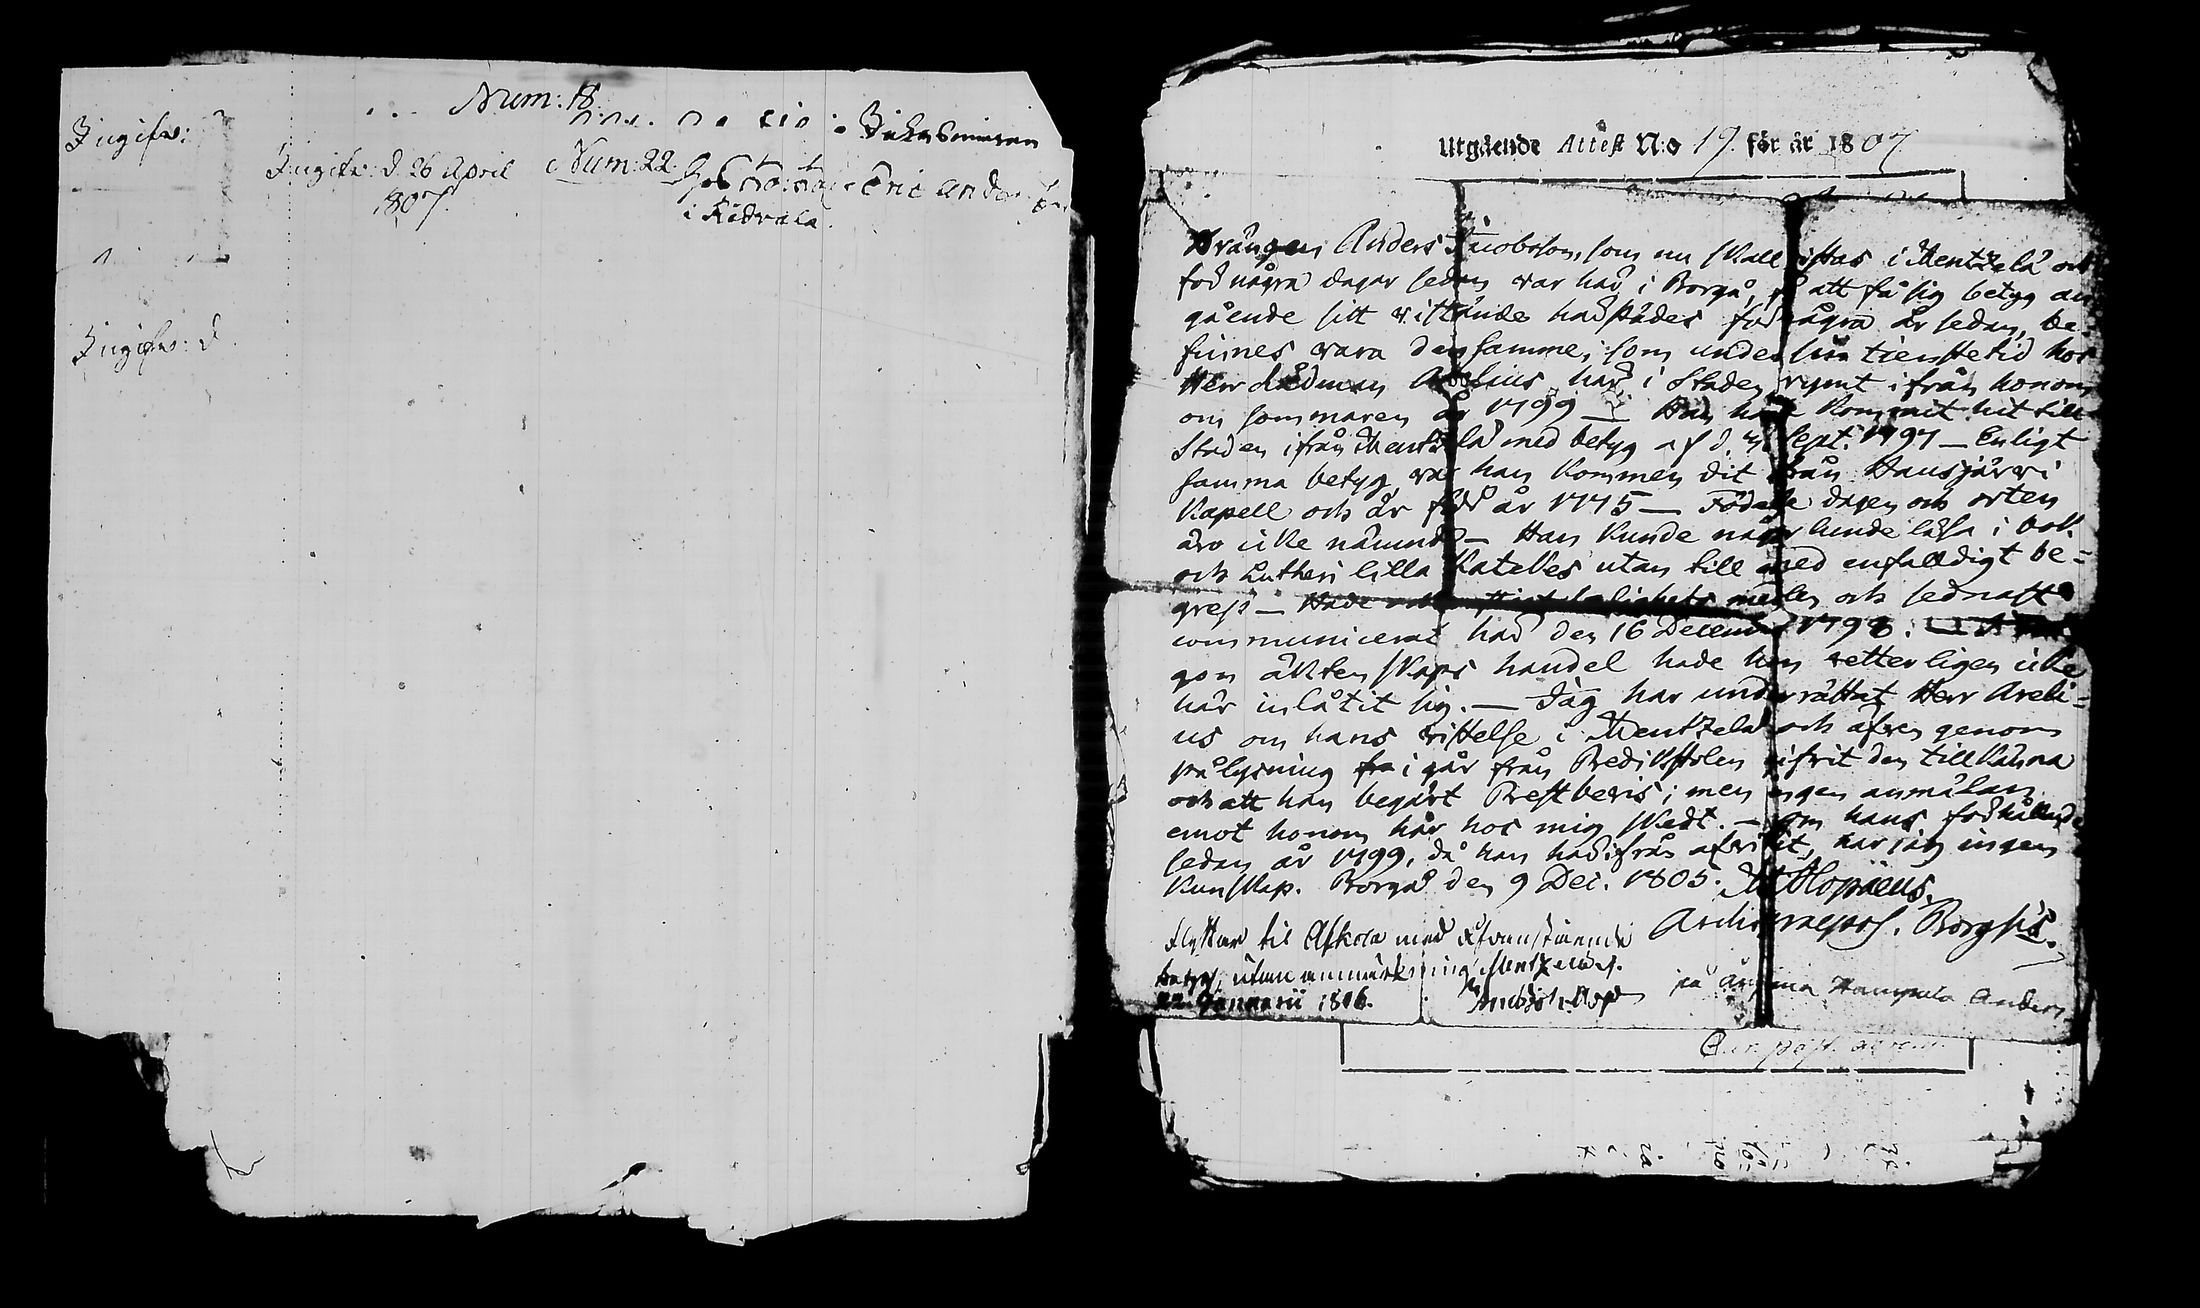 Num: 18.
Ingifw:
Ingifw: d. 26 April Num: 22. Eric
1807.
i Rådvala.
Ingifw: d.
Utgående Attest N:o 19. för år 1807
Drängen Anders Jacobsson, som nu skall vistas i Mentzelä och
för några dagar sedan var här i Borgå, att få sig betyg an
gående sitt vistände härstädes för några år sedan, be-
finnes vara den samme, som under sin tienstetid hos
Herr Rådman Arelius här i Staden rymt ifrån honom
om sommaren år 1799 — Han hade kommit hit till
Staden ifrån Mentzelä med betyg af d. Sept. 1797 — Enligt
samma betyg var han kommen dit från Hausjärvi
Kapell och är född år 1775 — Födelse dagen och orten
äro icke nämnde — Han kunde någorlunda läsa i bok
och Lutheri lilla Katekes utan till med enfalldigt be-
grep — Hade salighets medlen och sednast
communicerat här den 16 December 1798. —
gon äktenskaps handel hade han vetterligen icke
här inlåtit sig. — Jag har underrättat Herr Areli-
us om hans vistelse i Mentzelä och äfven genom
pålysning i går från Predikstolen gifvit den tillkänna
och att han begärt Prestbevis; men ingen anmälan
emot honom här hos mig skedt. — Om hans förhållande
sedan år 1799, då han härifrån afvikit, har jag ingen
kunskap. Borgå den 9 Dec. 1805. Alopæus.
Borgs:is.
Flyttar til Askola med ofvanstående
betyg, utan anmärkning. Mentzelä d.
22 Januarii 1806.
på Hampula Anders